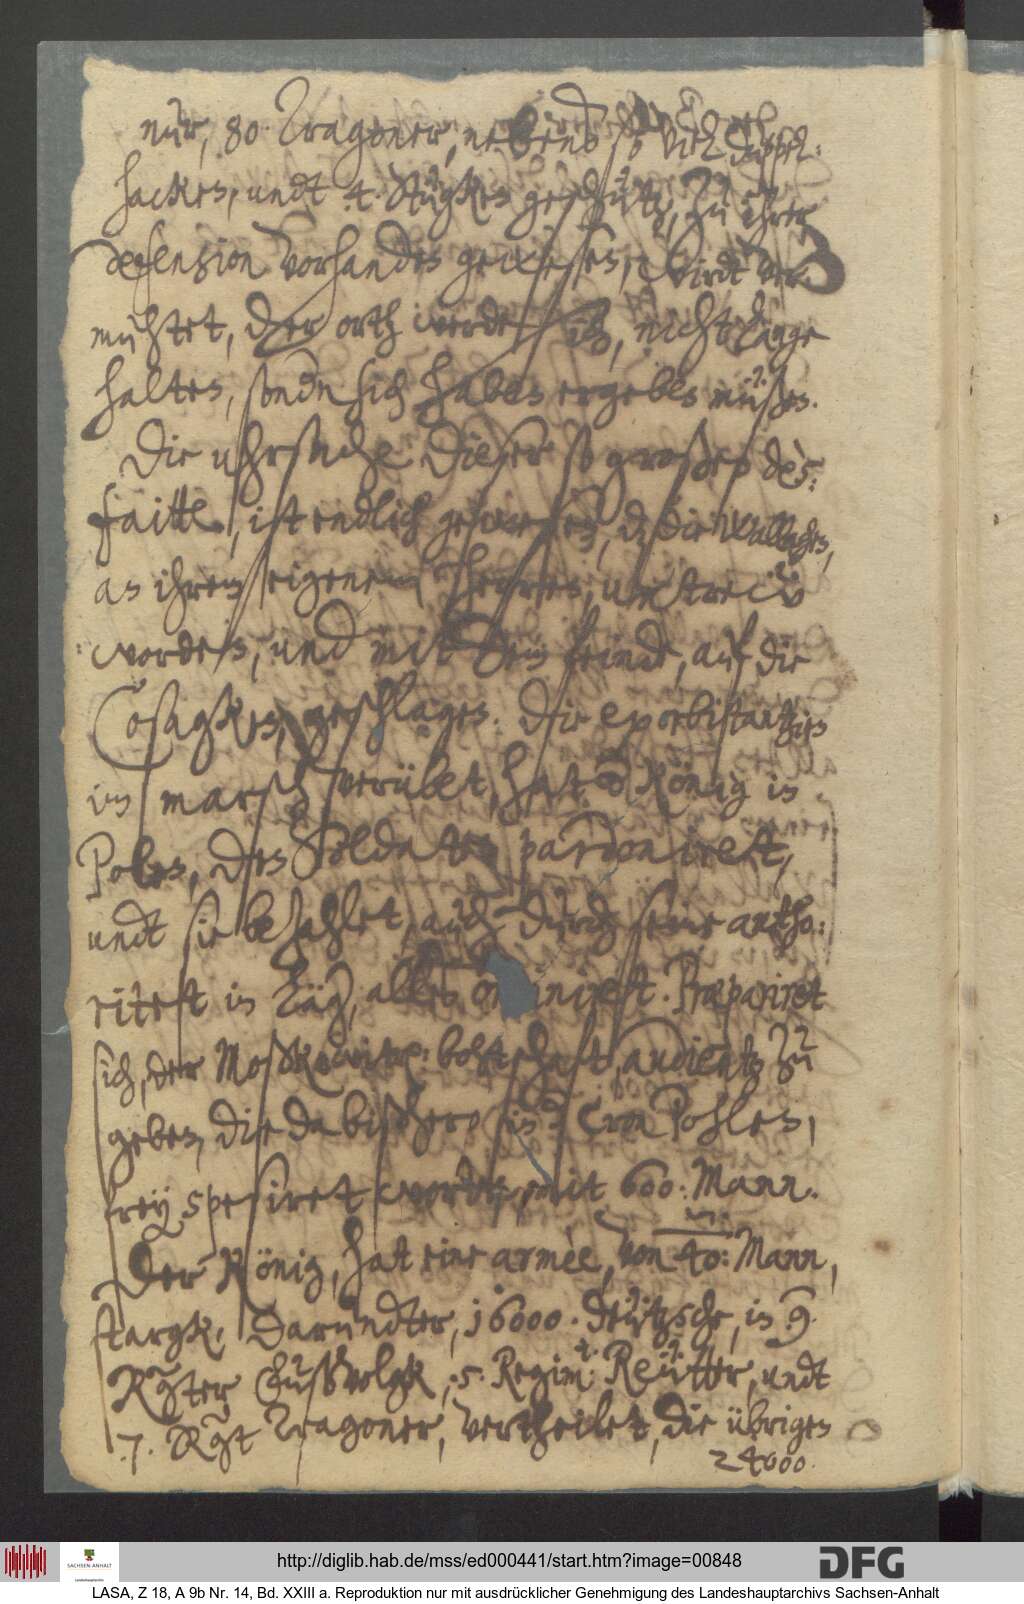 nur, 80 Tragoner, nebens so viel doppel:
hacken, undt 4 Stügken geschütz, zu ihrer
defension vorhanden gewesen, Wirdt ver-
muhtet, der orth werde sich, nicht lange
halten, sondern sich haben ergeben müßen.
Die uhrsache dieser so großen de-
faitte, ist endlich gewesen, daß die Wallachen,
an ihrem eigenem Herren, untreu
worden, und mit dem feinde, auf die
Cosagken, geschlagen. Die exorbitantzien
im marsch verübet, hat der König in
Polen, den Soldaten pardonirett,
undt sie bezahlet, auch durch seine autho:
ritet in Zaig, alles Præpariret
sich, der Moßkowiter: bohtschaft, audientz zu
geben, die da bißhero in der Cron Pohlen,
frey speßiret worden, mit 600: Mann.
Der König, hat eine armèe, von 40: m Mann,
starck, darundter, 16000. deützsche, in 9.
Rgter Fußvolgk, 5. Regim: Reütter, undt
7. Rgt Tragoner, vertheilet, die übrigen
24000.
http://diglib.hab.de/mss/ed000441/start.htm?image=00848
SACHSEN-ANHALT
DFG
LASA, Z 18, A 9b Nr. 14, Bd. XXIII a. Reproduktion nur mit ausdrücklicher Genehmigung des Landeshauptarchivs Sachsen-Anhalt